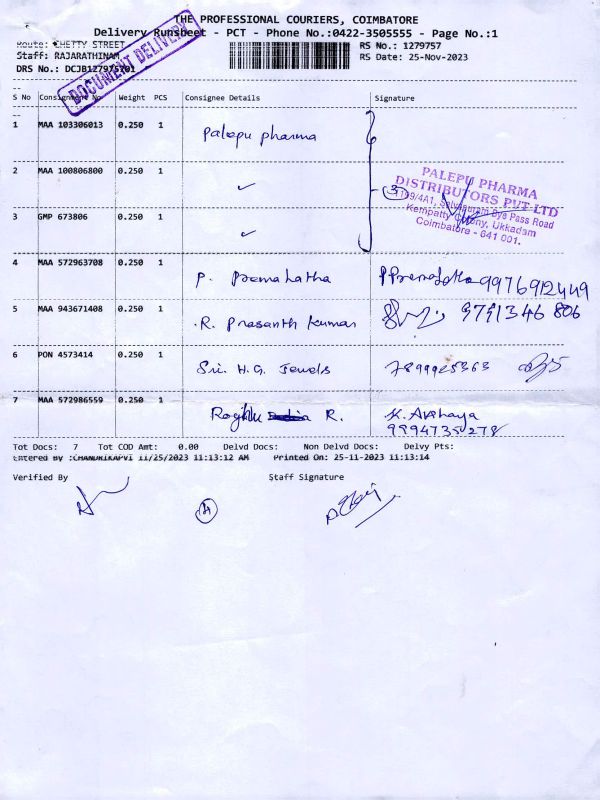 THE PROFESSIONAL COURIERS, COIMBATORE
Delivery Runsheet - PCT - Phone No.:0422-3505555 - Page No.:1
Route: CHETTY STREET
RS No.: 1279757
Staff: RAJARATHINAM
RS Date: 25-Nov-2023
DRS No.: DCJB127975701
DOCUMENT DELIVERY
S No Consignment No Weight PCS Consignee Details Signature
1 MAA 103306013 0.250 1 Palepu pharma
2 MAA 100806800 0.250 1 ✓
3 GMP 673806 0.250 1 ✓
3
PALEPU PHARMA
DISTRIBUTORS PVT LTD
Bye Pass Road
Kempatty Colony, Ukkadam
Coimbatore - 641 001.
4 MAA 572963708 0.250 1 P. Premalatha P Premalatha 9976912449
5 MAA 943671408 0.250 1 R. Prasanth Kumar 9791346806
6 PON 4573414 0.250 1 Sri. H.G. Jewels 7899925363
7 MAA 572986559 0.250 1 R. K. Akshaya
Tot Docs: 7 Tot COD Amt: 0.00 Delvd Docs: Non Delvd Docs: Delvy Pts:
Entered By :CHANDRIKAPVT 11/25/2023 11:13:12 AM Printed On: 25-11-2023 11:13:14
Verified By Staff Signature